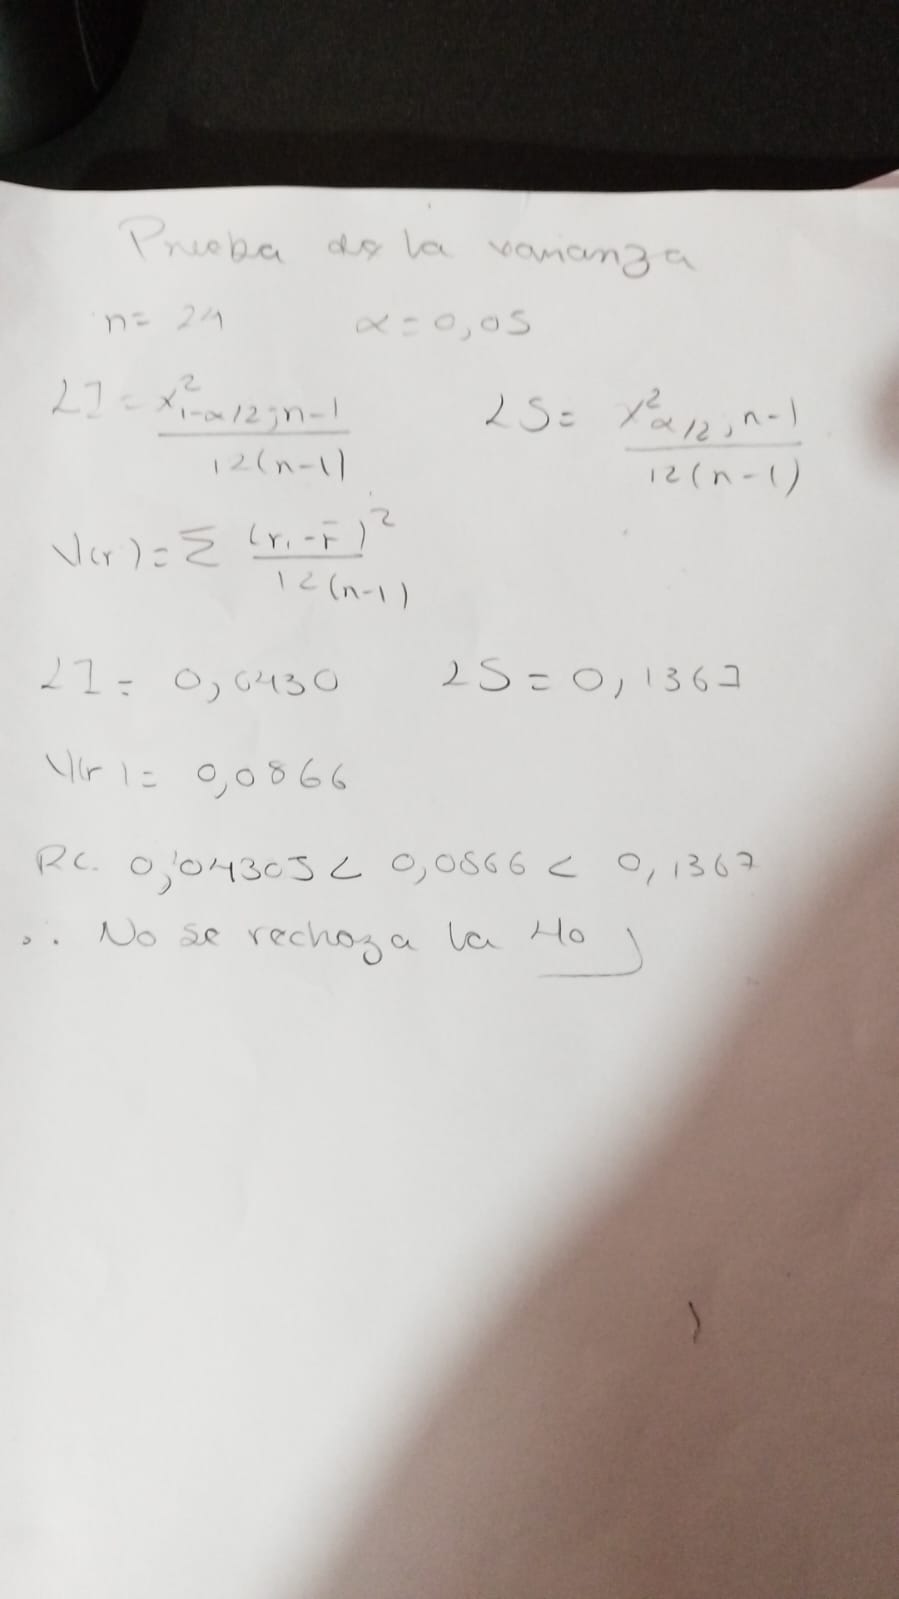 Prueba de la varianza
n= 24 α=0,05
LI = x²1-α/2;n-1 / 12(n-1) LS= x²α/2,n-1 / 12(n-1)
V(r)=Σ (ri-r̄)² / 12(n-1)
LI= 0,0430 LS=0,1367
V(r)= 0,0866
RC. 0,04305< 0,0866 < 0,1367
∴ No se rechaza la Ho